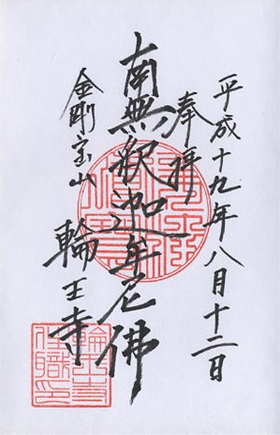 平成十九年八月十二日
奉拝
南無釈迦牟尼佛
金剛宝山
輪王寺
輪王寺
住職印